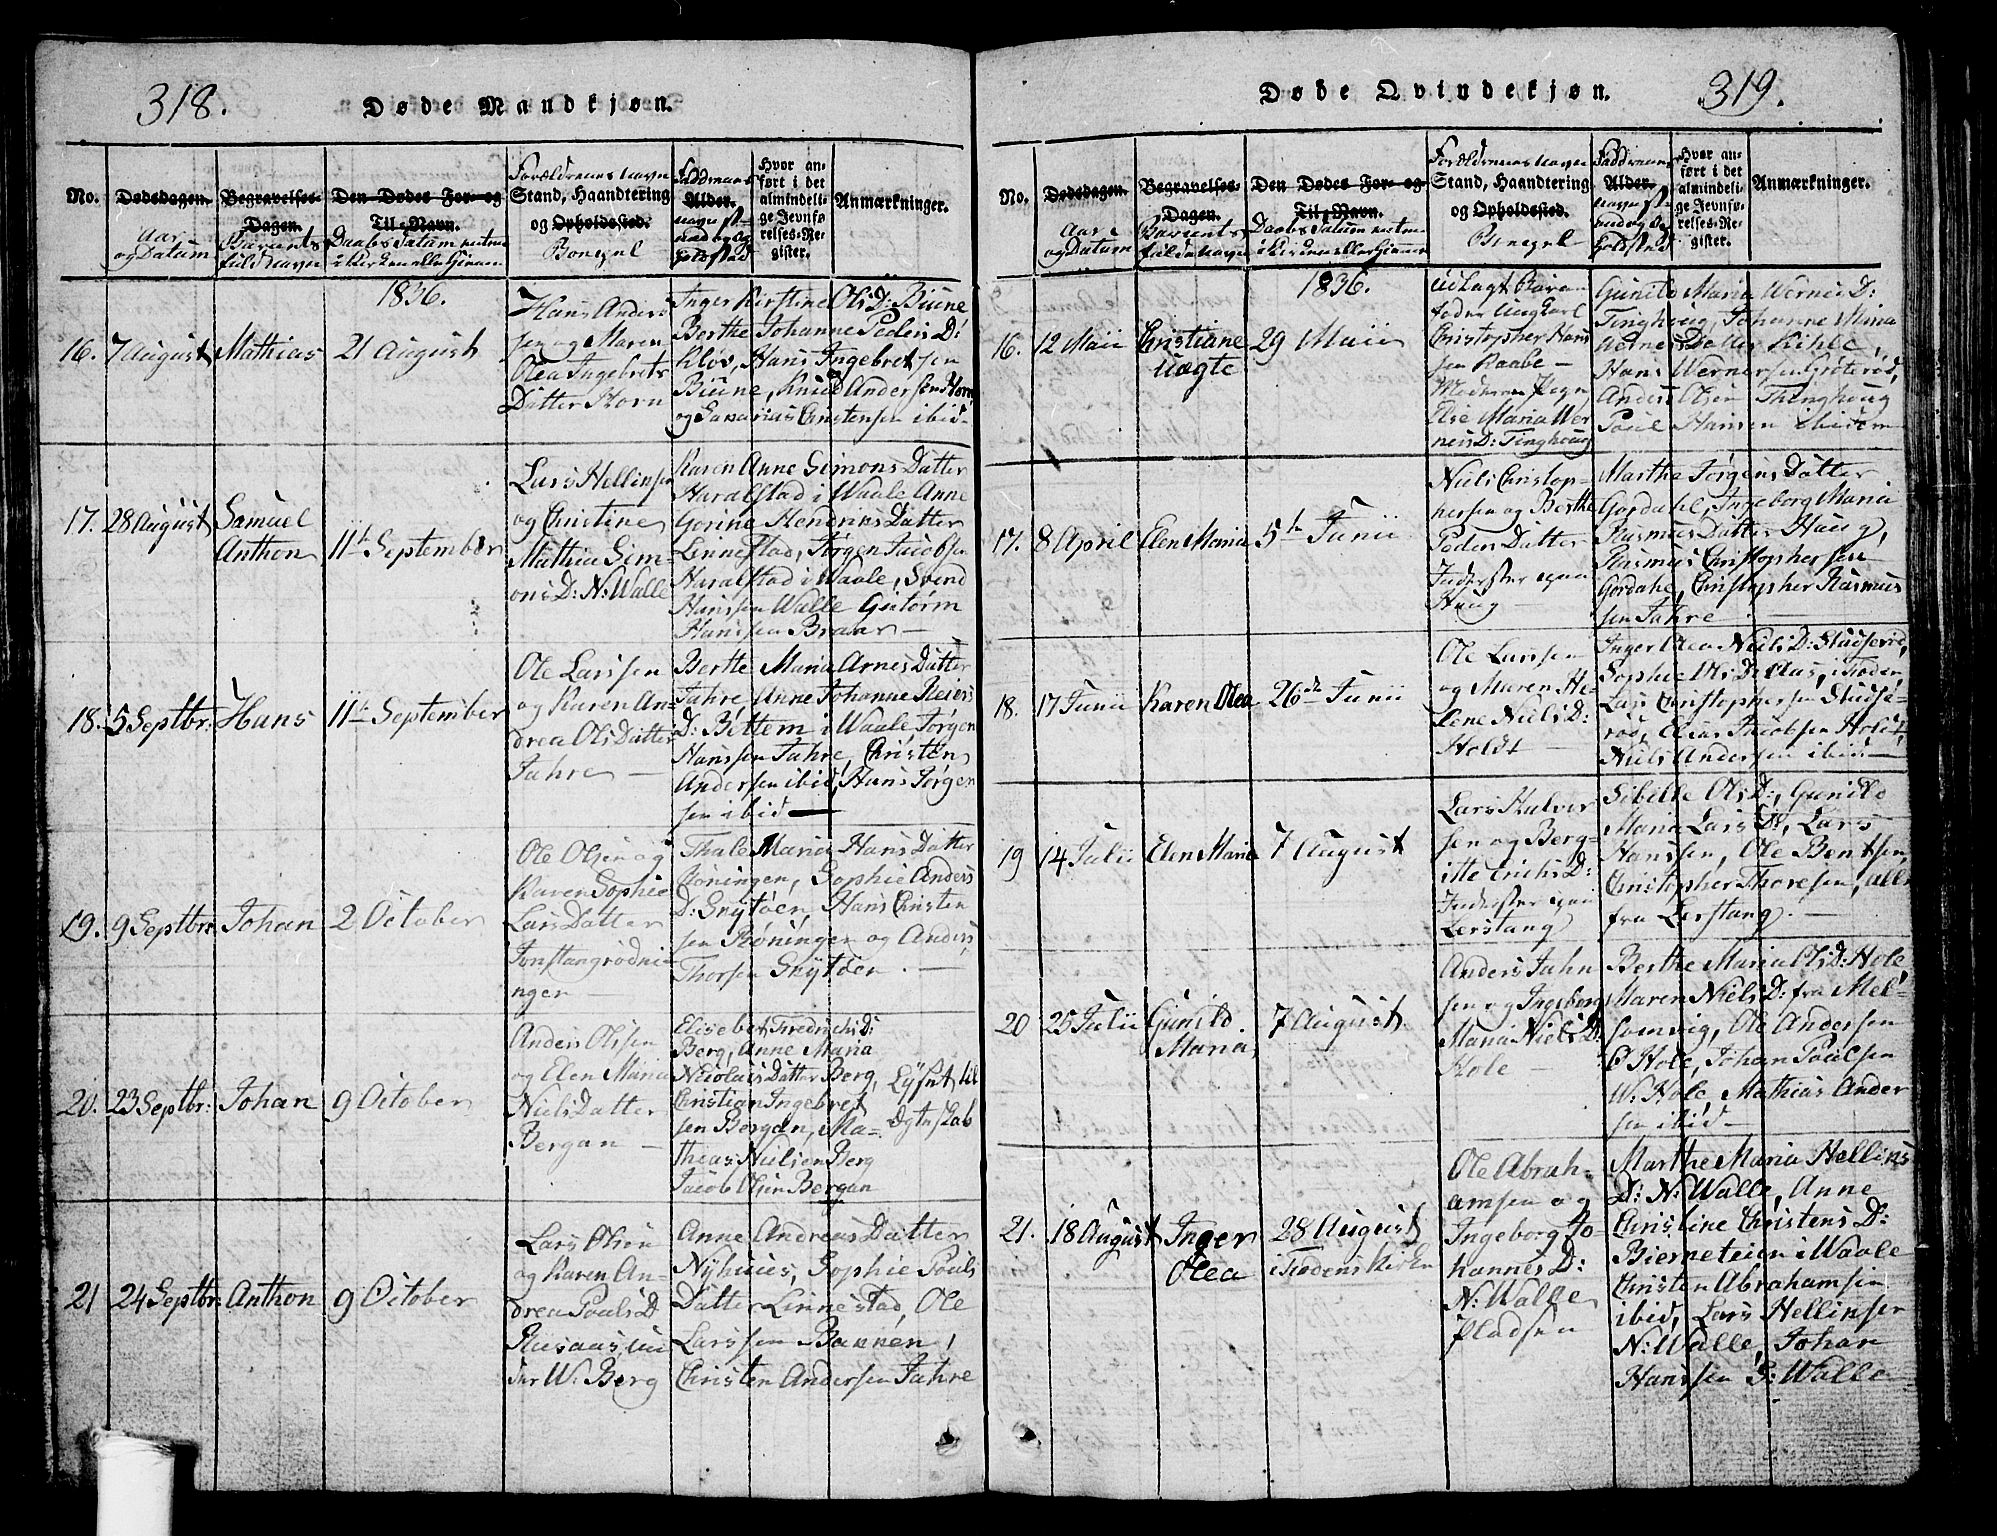 318.
Døde Mandkjøn.
No.
Dødsdagen.
Aar
og Datum
Begravelses-
Dagen.
Barnets
fulde navn
Den Dødes For- og
Til-Navn.
Daabs Datum enten
i Kirken eller Hjemme
Forældrenes navn
Stand, Haandtering
og Opholdssted.
Bopæl
Faddrenes
Alder.
navn st-
and og Op
holdsted
Hvor an-
ført i det
almindeli-
ge Jevnfø-
relses-Re-
gister.
Anmærkninger.
1836.
16. 7 August Mathias 21 August
Hans Ander-
sen og Maren
Olea Ingebrets
Datter Horn
Inger Kirstine Ols D: Biune
Berthe Johanne Peders D:
Klov, Hans Ingebretsen
Biune, Knud Andersen Horn
og Sakarias Christensen ibid-
17. 28 August Samuel
Anthon 11te September
Lars Hellinsen
og Christine
Mathia Sim-
ons D: N. Walle
Karen Anne Simons Datter
Haralstad i Waale Anne
Gorine Hendriks Datter
Linnestad, Jørgen Jacobsen
Haralstad i Waale, Svend
Hanssen Walle Gutorm
Hanssen Braar-
18. 5 Septbr: Hans 11te September
Ole Larssen
og Karen An-
drea Ols Datter
Jahre -
Berthe Maria Arnes Datter
Jahre, Anne Johanne Reiers
D: Bettem i Waale, Jørgen
Hanssen Jahre, Christen
Andersen ibid, Hans Jørgen
sen ibid-
19. 9 Septbr: Johan 2 October
Ole Olsen og
Karen Sophie
Lars Datter
ngen -
Thale Maria Hans Datter
Röningen, Sophie Anders
D: Snÿtöen, Hans Christen
sen Röningen og Anders
Thorsen Snÿtöen. -
20. 23 Septbr: Johan 9 October
Anders Olssen
og Elen Maria
Niels Datter
Bergan -
Elisebet Fredrichs D:
Berg, Anne Maria
Nicolais Datter Berg,
Christian Ingebret
sen Bergan, Ma-
theas Nielsen Berg
Jacob Olsen Bergan
Lÿsnt til
Dgtnskab
21 24 Septbr: Anthon 9 October
Lars Olsen
og Karen An-
drea Pouls D
W. Berg
Anne Andreas Datter
Nÿhuus, Sophie Pouls
Datter Linnestad, Ole
Larssen Bakken,
Christen Andersen Jahre
319.
Døde Qvindekjøn.
No.
Dødsdagen.
Aar
og Datum
Begravelses-
Dagen.
Barnets
fulde navn
Den Dødes For- og
Til-Navn.
Daabs Datum enten
i Kirken eller Hjemme
Forældrenes navn
Stand, Haandtering
og Opholdssted.
Bopæl
Faddrenes
Alder.
navn st-
and og Op
holdsted
Hvor an-
ført i det
almindeli-
ge Jevnfø-
relses-Re-
gister.
Anmærkninger.
1836.
16. 12 Maii Christiane
Uægte 29 Maii
Udlagt Barne
fader Ungkarl
Christopher Hans
sen Raabe -
Moderen Pigen
Else Maria Wer
ners D: Tinghoug
Gunild Maria Werners D:
Tinghoug, Johanne Maria
Werners Datter Kihle,
Hans Wernersen Guterød,
Anders Olsen Thinghoug
Poul Hansen ibidem
17. 8 April Elen Maria 5te Junii
Niels Christop-
hersen og Berthe
Peders Datter
Inderster paa
Houg
Marthe Jørgens Datter
Gordahl, Ingeborg Maria
Rasmus Datter Houg,
Rasmus Christophersen
Gordahl, Christopher Rasmus
sen Jahre
18. 17 Junii Karen Olea 26de Junii
Ole Larssen
og Maren He-
lene Niels D:
Holdt -
Inger Olea Niels D:
Sophie Ols D: Aas, i Tjøden,
Lars Christophersen
Claus Jacobsen Holdt
Niels Andersen ibid-
19 14 Julii Elen Maria 7 August
Lars Halvor
sen og Berg-
itte Erichs D:
Inderster paa
Lerstang
Sibille Ols D:, Gunild
Maria Lars D:, Lars
Hanssen, Ole Bentsen,
Christopher Thoresen, alle
fra Lerstang. -
20 25 Julii Gunild
Maria 7 August
Anders Jahn
sen og Ingeborg
Maria Niels D:
Hole -
Berthe Maria Ols D: Hole
Maren Niels D: fra Mel-
somvig, Ole Andersen
Ø Hole, Johan Poulsen
W. Hole, Mathias Ander
sen ibid-
21. 18 August Inger
Olea 28 August
i Tjødens Kirke
Ole Abrah-
amsen og
Ingeborg Jo-
hannes D:
N: Walle
Pladsen
Marthe Maria Hellins
D: N: Walle, Anne
Christine Christens D:
Bierneteien i Waale
Christen Abrahamsen
ibid, Lars Hellinsen
N: Walle, Johan
Hanssen S: Walle